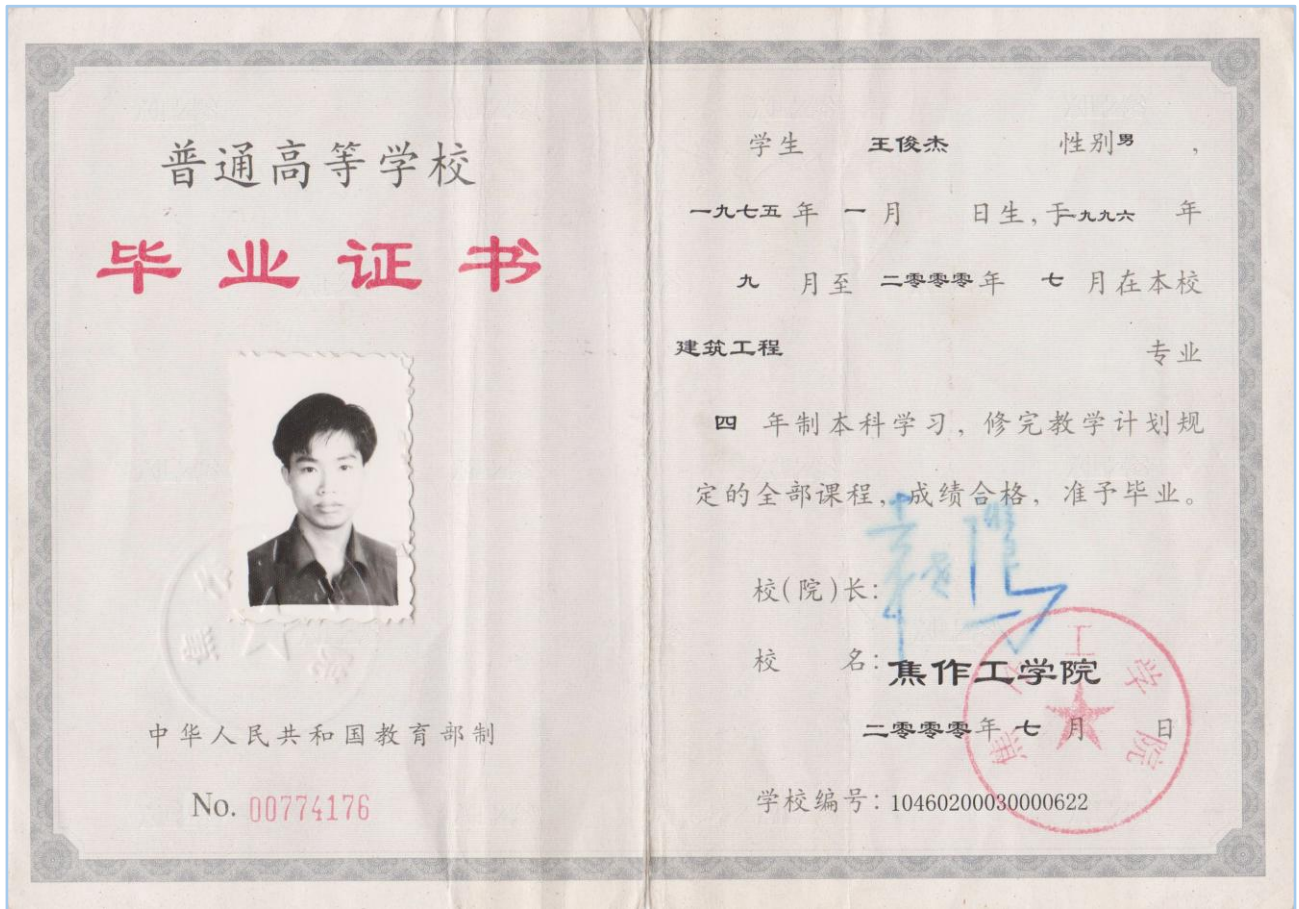 普通高等学校
毕业证书
中华人民共和国教育部制
No. 00774176
学生 王俊杰 性别男,
一九七五年一月 日生,于一九九六 年
九 月至 二零零零年 七 月在本校
建筑工程 专业
四 年制本科学习,修完教学计划规
定的全部课程,成绩合格,准予毕业。
校(院)长:
校 名:焦作工学院
二零零零年 七 月 日
学校编号:10460200030000622
焦作工学院